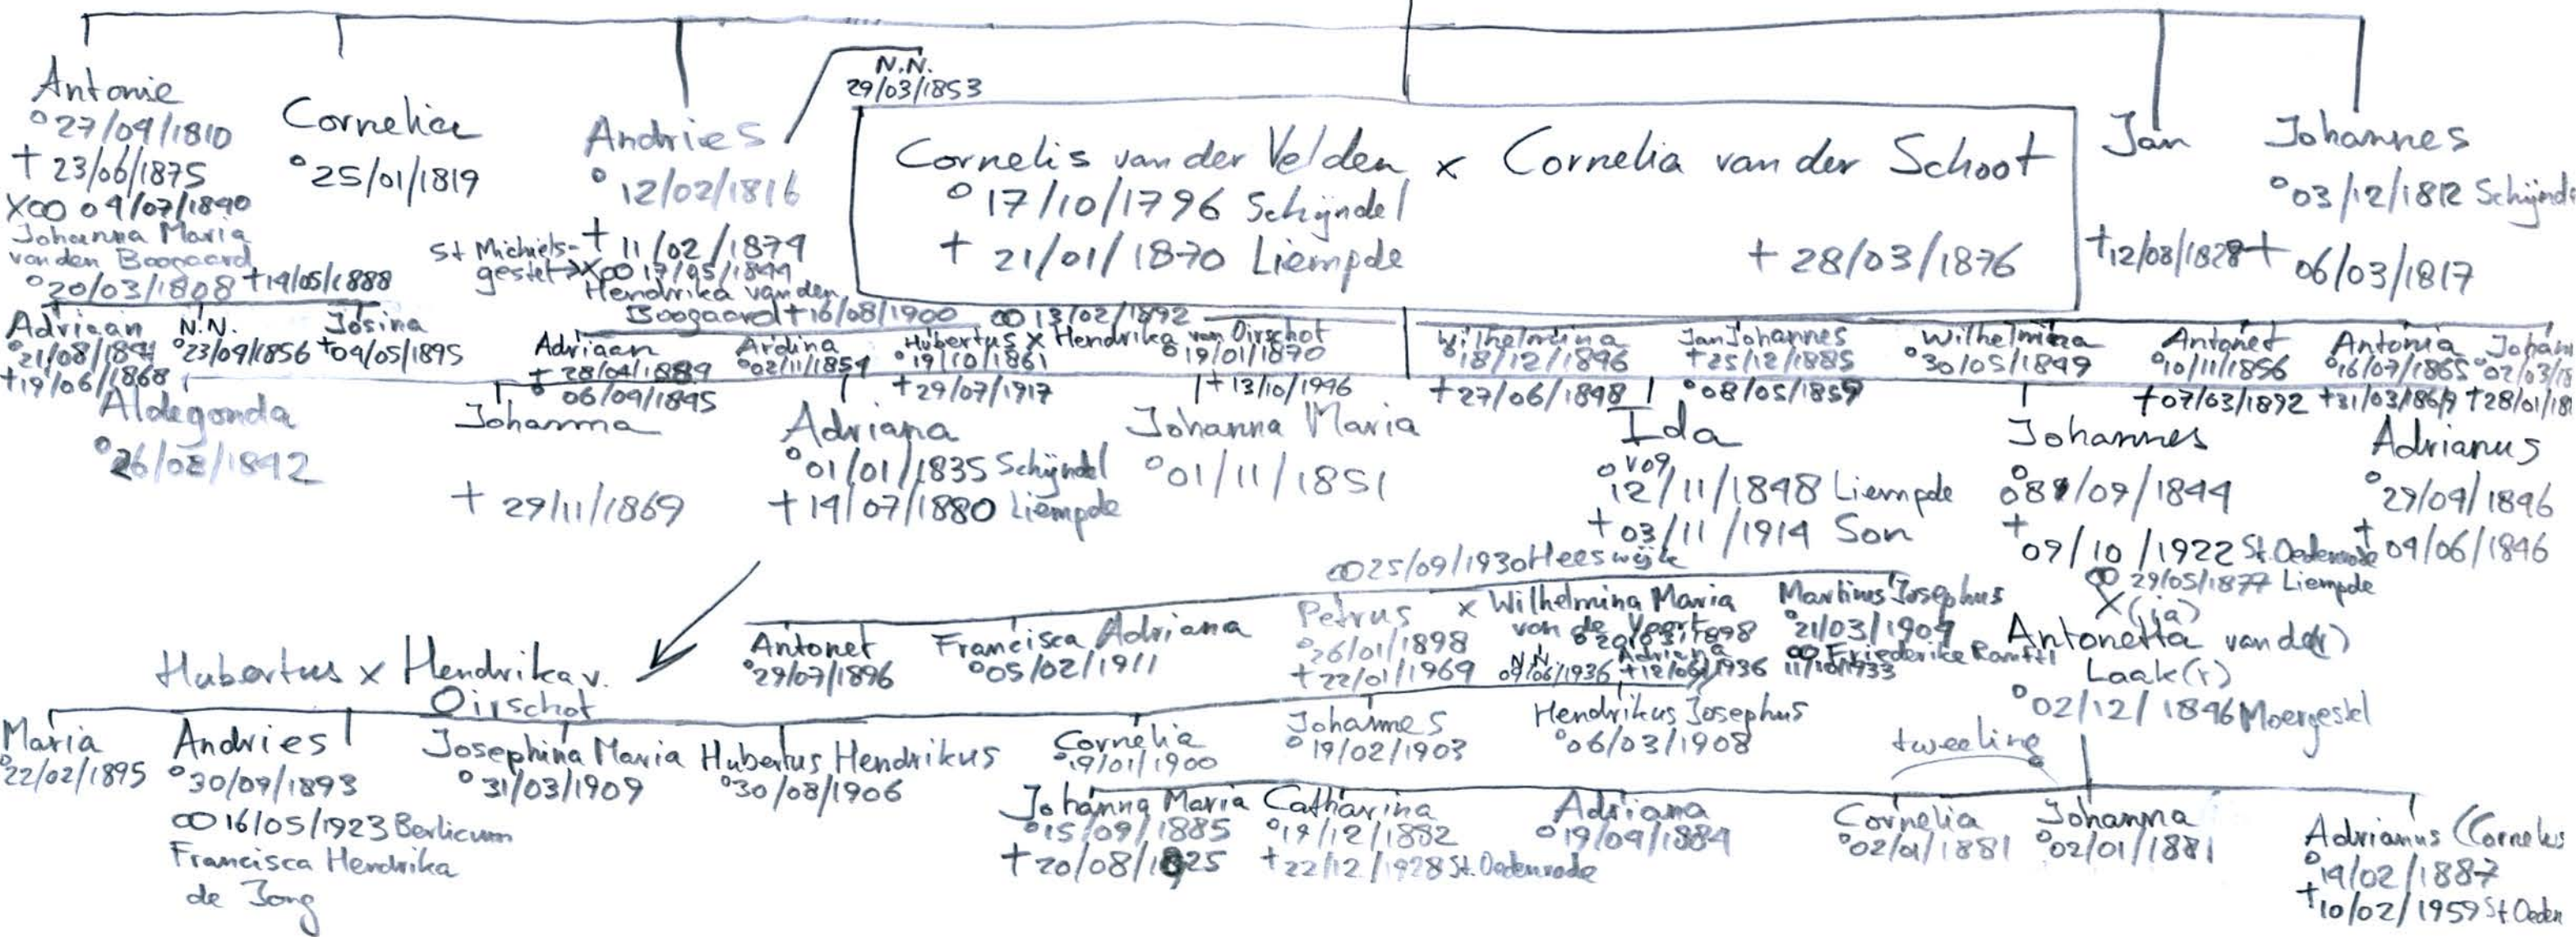 N.N.
29/03/1853
Antonie
°27/04/1810
† 23/06/1875
X∞ 04/07/1840
Johanna Maria
van den Boogaard
°20/03/1808 †14/05/1888
Cornelia
°25/01/1819
Andries
°12/02/1816
† 11/02/1874
St Michiels-
gestel → X∞ 17/05/1844
Hendrika van den
Boogaard †16/08/1900
Cornelis van der Velden x Cornelia van der Schoot
°17/10/1796 Schijndel
† 21/01/1870 Liempde
† 28/03/1876
Jan
†12/08/1828
Johannes
°03/12/1812 Schijnd
† 06/03/1817
Adriaan
°21/08/1841
†19/06/1868
N.N.
°23/09/1856
Josina
†04/05/1895
Adriaan
† 28/04/1889
° 06/09/1845
Ardina
°02/11/1854
∞ 13/02/1892
Hubertus x Hendrika van Oirschot
°19/10/1861 °19/01/1870
†29/07/1917 †13/10/1946
Wilhelmina
°18/12/1846
†27/06/1848
Jan Johannes
†25/12/1885
°08/05/1859
Wilhelmina
°30/05/1849
Antonet
°10/11/1856
†07/03/1892
Antonia
°16/07/1865
†31/03/1869
Johann
°02/03/18
†28/01/18
Aldegonda
°26/02/1842
Johanna
† 29/11/1869
Adriana
°01/01/1835 Schijndel
†14/07/1880 Liempde
Johanna Maria
°01/11/1851
Ida
° vog
12/11/1848 Liempde
† 03/11/1914 Son
Johannes
°08/09/1844
†
09/10/1922 St. Oedenrode
∞ 29/05/1877 Liempde
X (ja)
Antonetta van de(r)
Laak(r)
°02/12/1846 Moergestel
Adrianus
°29/04/1846
† 04/06/1846
∞25/09/1930 Heeswijk
Hubertus x Hendrika v.
Oirschot
Antonet
°29/07/1896
Francisca Adriana
°05/02/1911
Petrus x Wilhelmina Maria
van de Voort
°26/01/1898
†22/01/1969
N.N. Adriana
09/06/1936 †12/06/1936
Martinus Josephus
°21/03/1904
∞ Friederike Ranftl
11/10/1933
Maria
°22/02/1895
Andries
°30/09/1893
∞ 16/05/1923 Berlicum
Francisca Hendrika
de Jong
Josephina Maria
°31/03/1909
Hubertus Hendrikus
°30/08/1906
Cornelia
°19/01/1900
Johannes
°19/02/1903
Hendrikus Josephus
°06/03/1908
tweeling
Johanna Maria
°15/09/1885
†20/08/1925
Catharina
°19/12/1882
†22/12/1928 St. Oedenrode
Adriana
°19/04/1884
Cornelia
°02/01/1881
Johanna
°02/01/1881
Adrianus (Cornelis
°14/02/1887
†10/02/1959 St Oeden